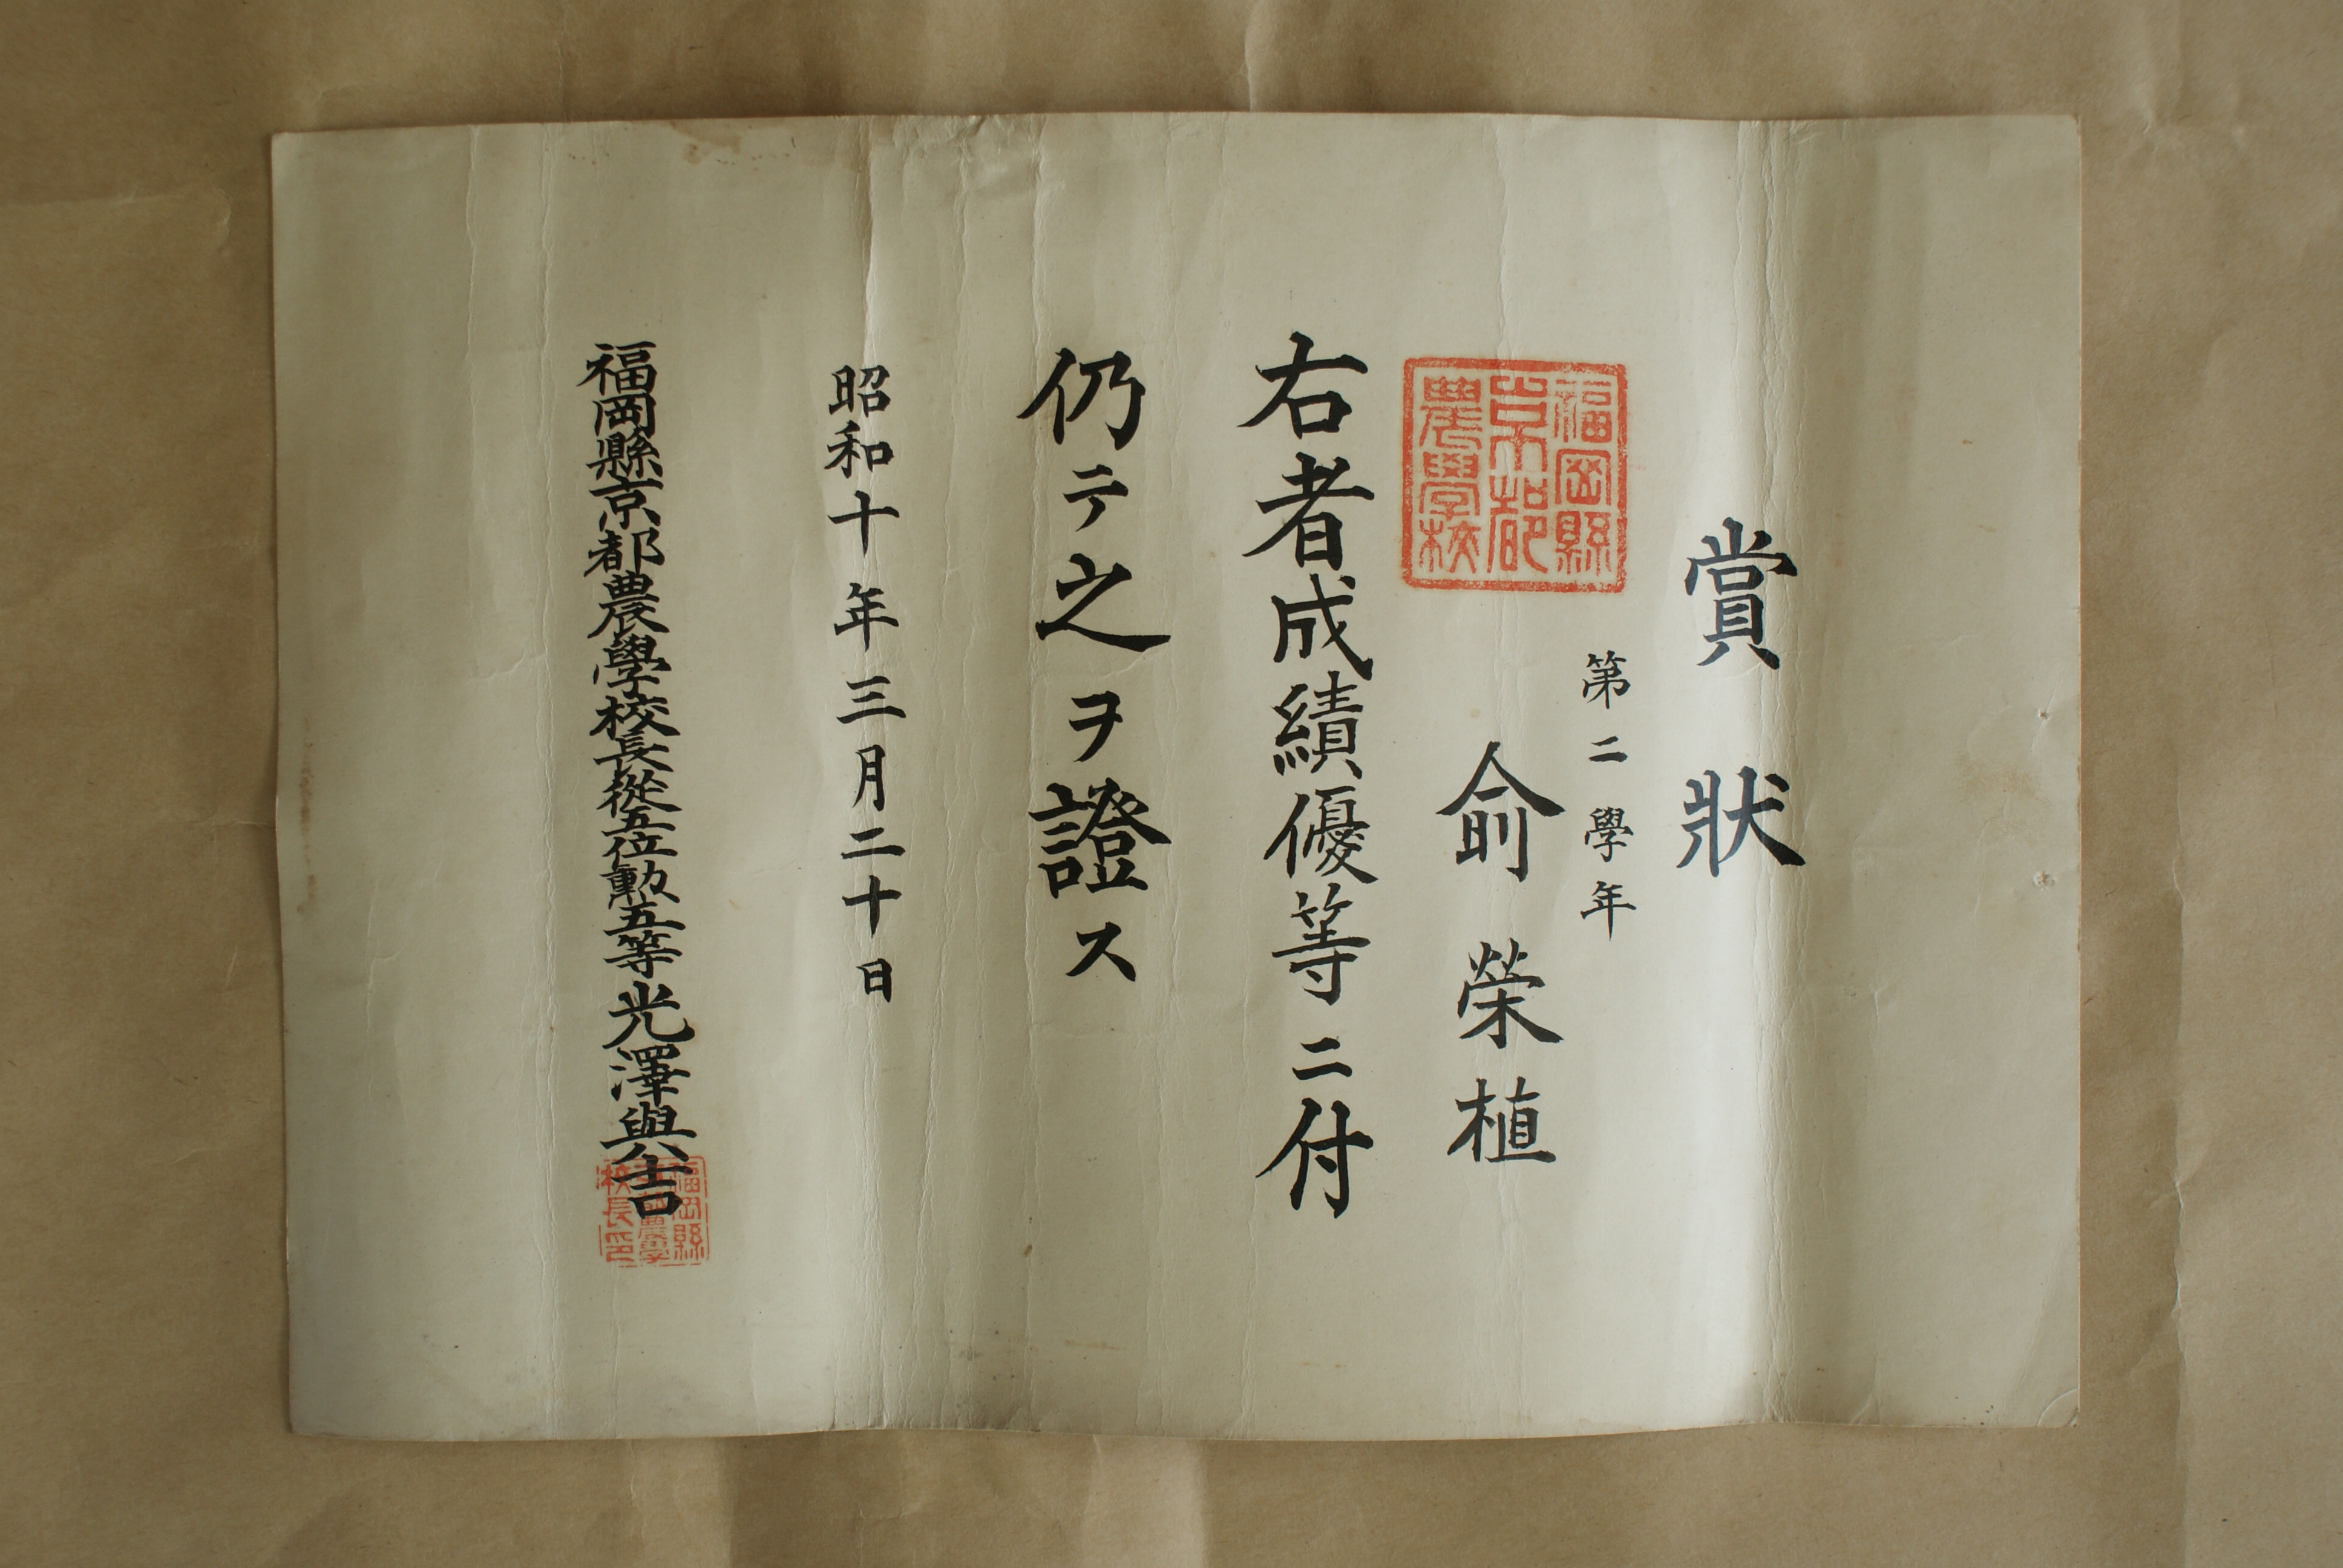 賞狀
第二學年
兪榮植
福岡縣
京都
農學校
右者成績優等ニ付
仍テ之ヲ證ス
昭和十年三月二十日
福岡縣京都農學校長從五位勳五等光澤與八吉
福岡縣
農學
校長印